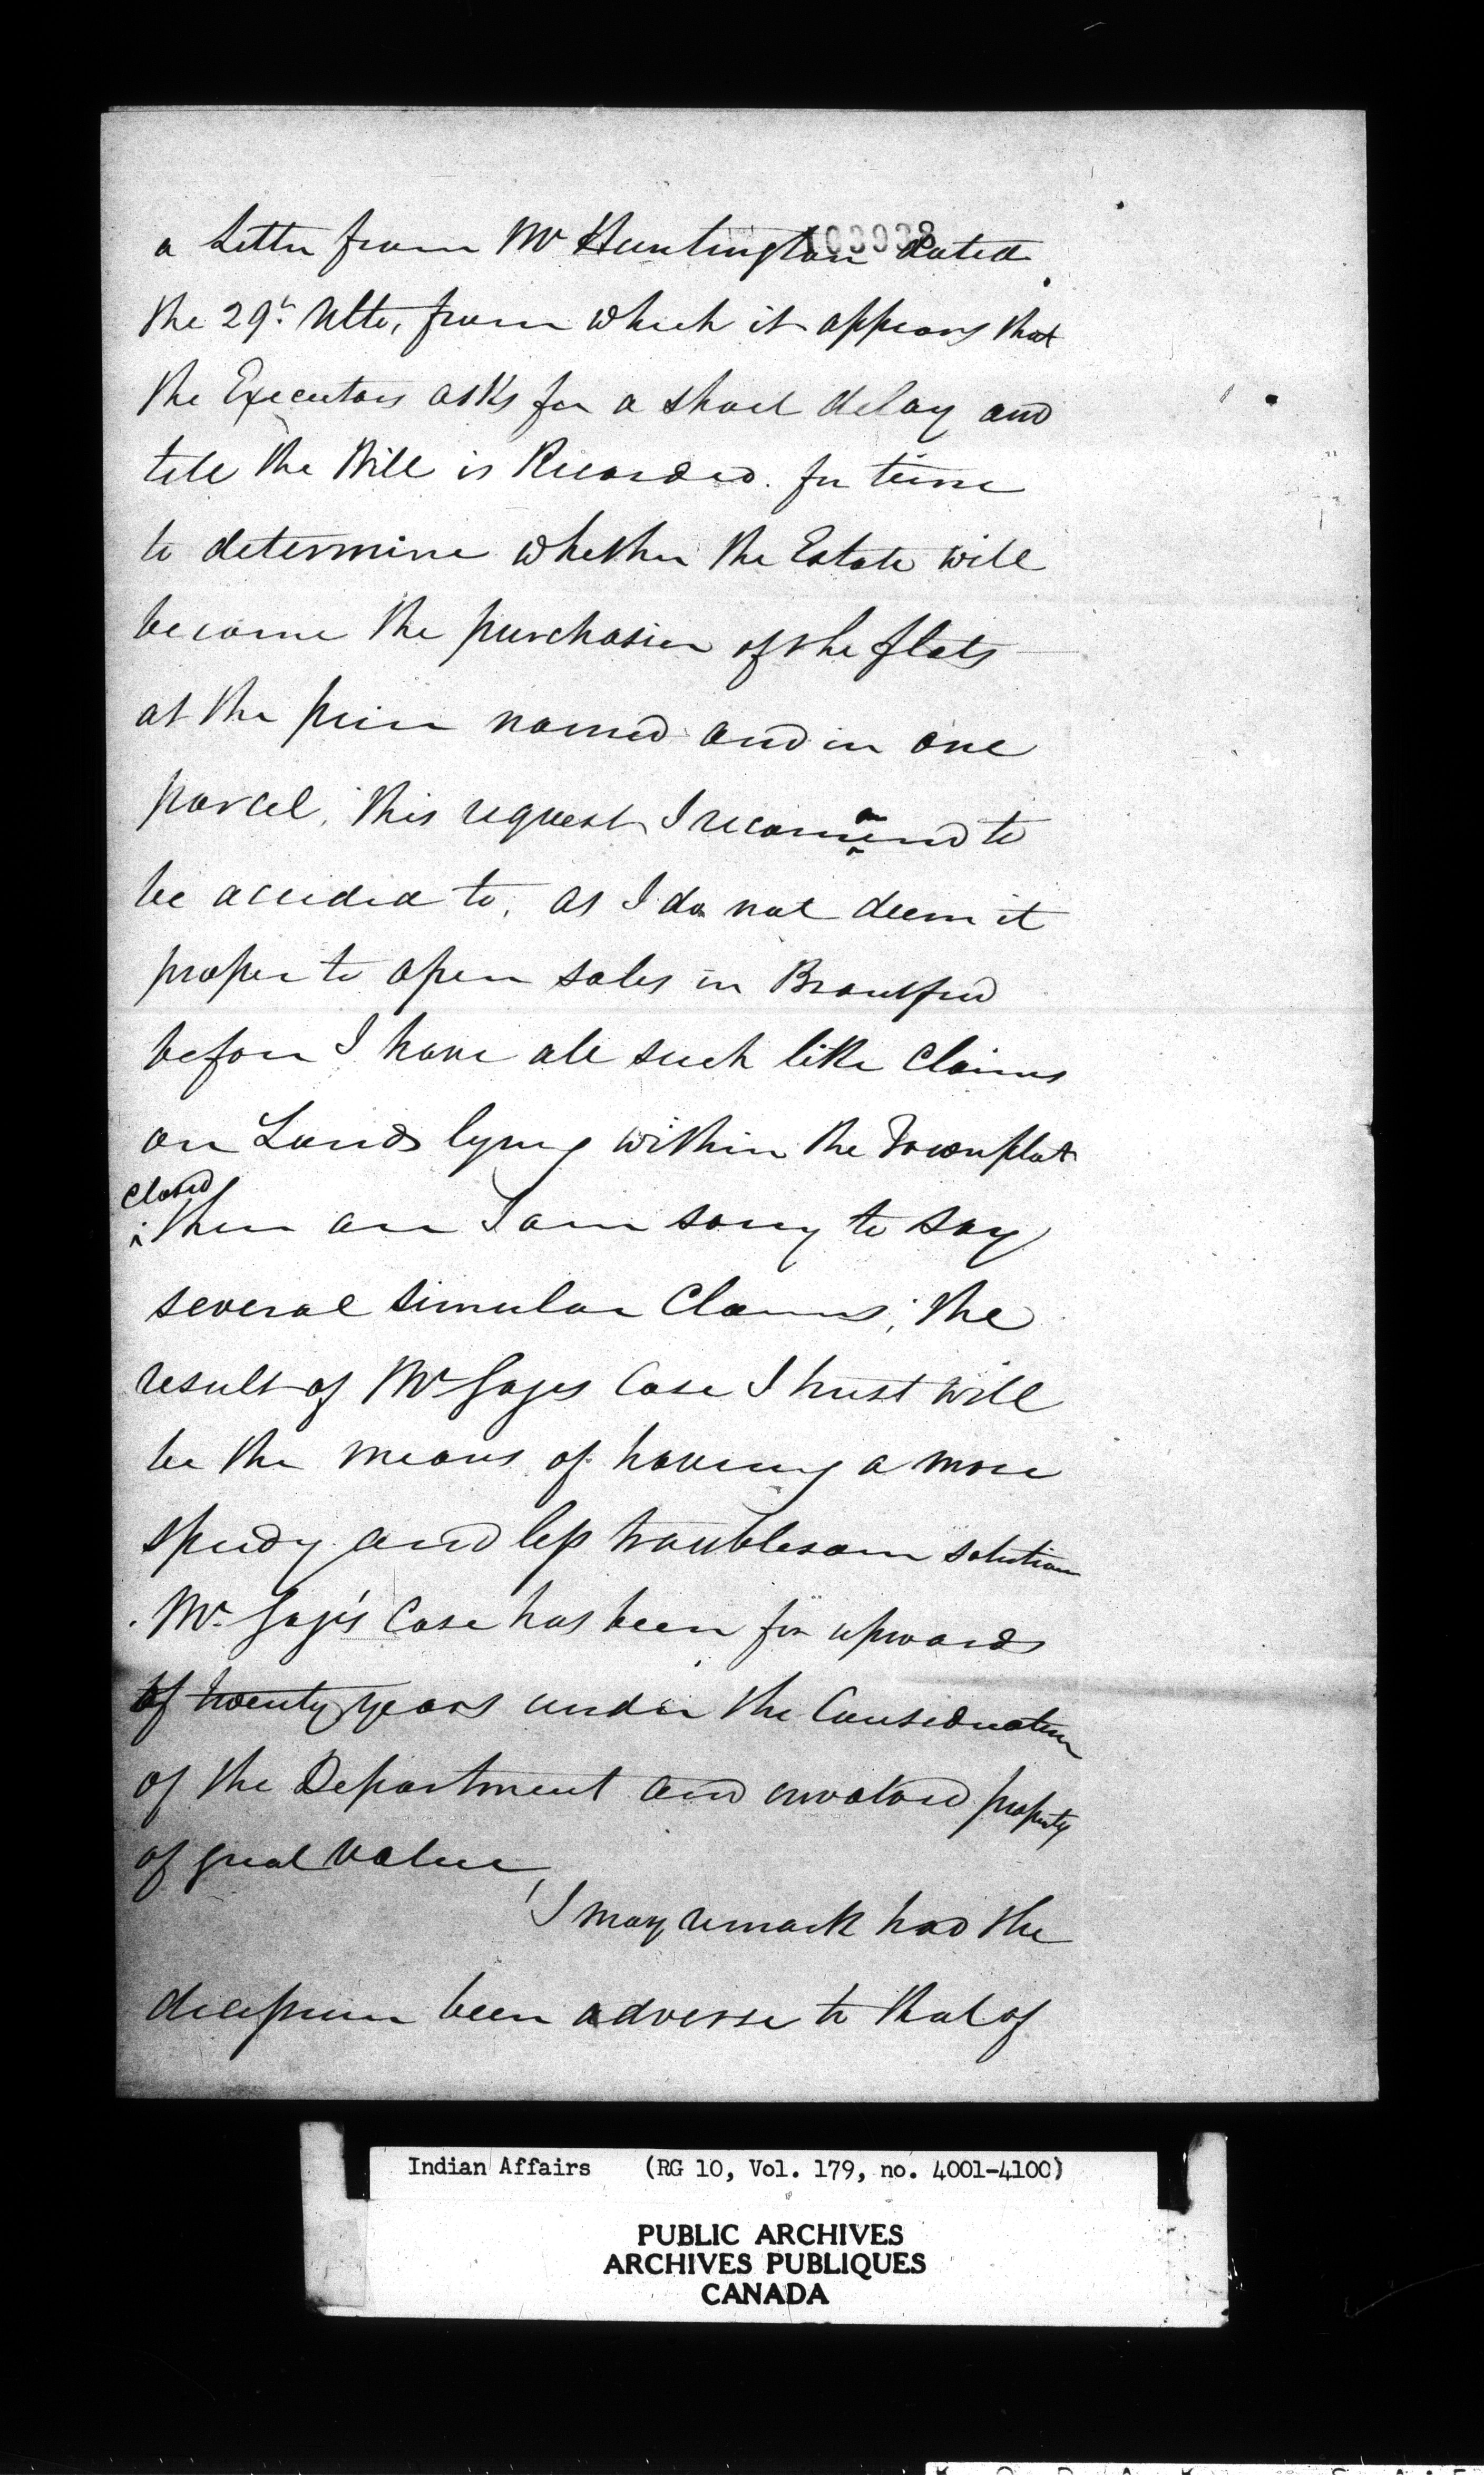 a Letter from Mr Huntington dated
the 29th Ulto, from which it appears that
the Executors asks for a short delay and
till the Will is Recorded. for time
to determine whether the Estate will
become the purchaser of the flats
at the price named and in one
parcel, this request I recommend to
be acceded to, as I do not deem it
proper to open sales in Brantford
before I have all such like Claims
on Lands lying within the Townplot
closed
there are I am sorry to say
several simular Claims; the
result of Mr Gages Case I trust will
be the means of having a more
speedy and less troublesom solution
Mr. Gage's Case has been for upwards
of twenty years under the Consideration
of the Department and involved property
of great value,
I may remark had the
decission been adverse to that of
Indian Affairs (RG 10, Vol. 179, no. 4001-4100)
PUBLIC ARCHIVES
ARCHIVES PUBLIQUES
CANADA